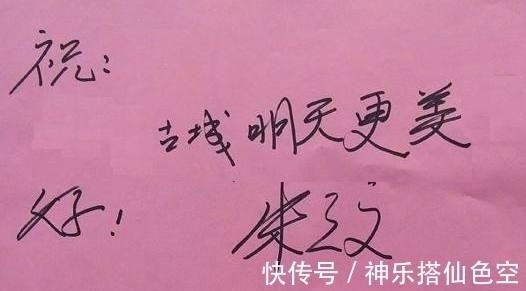 祝：
古城明天更美
好！
朱之文
快传号／神乐搭仙色空